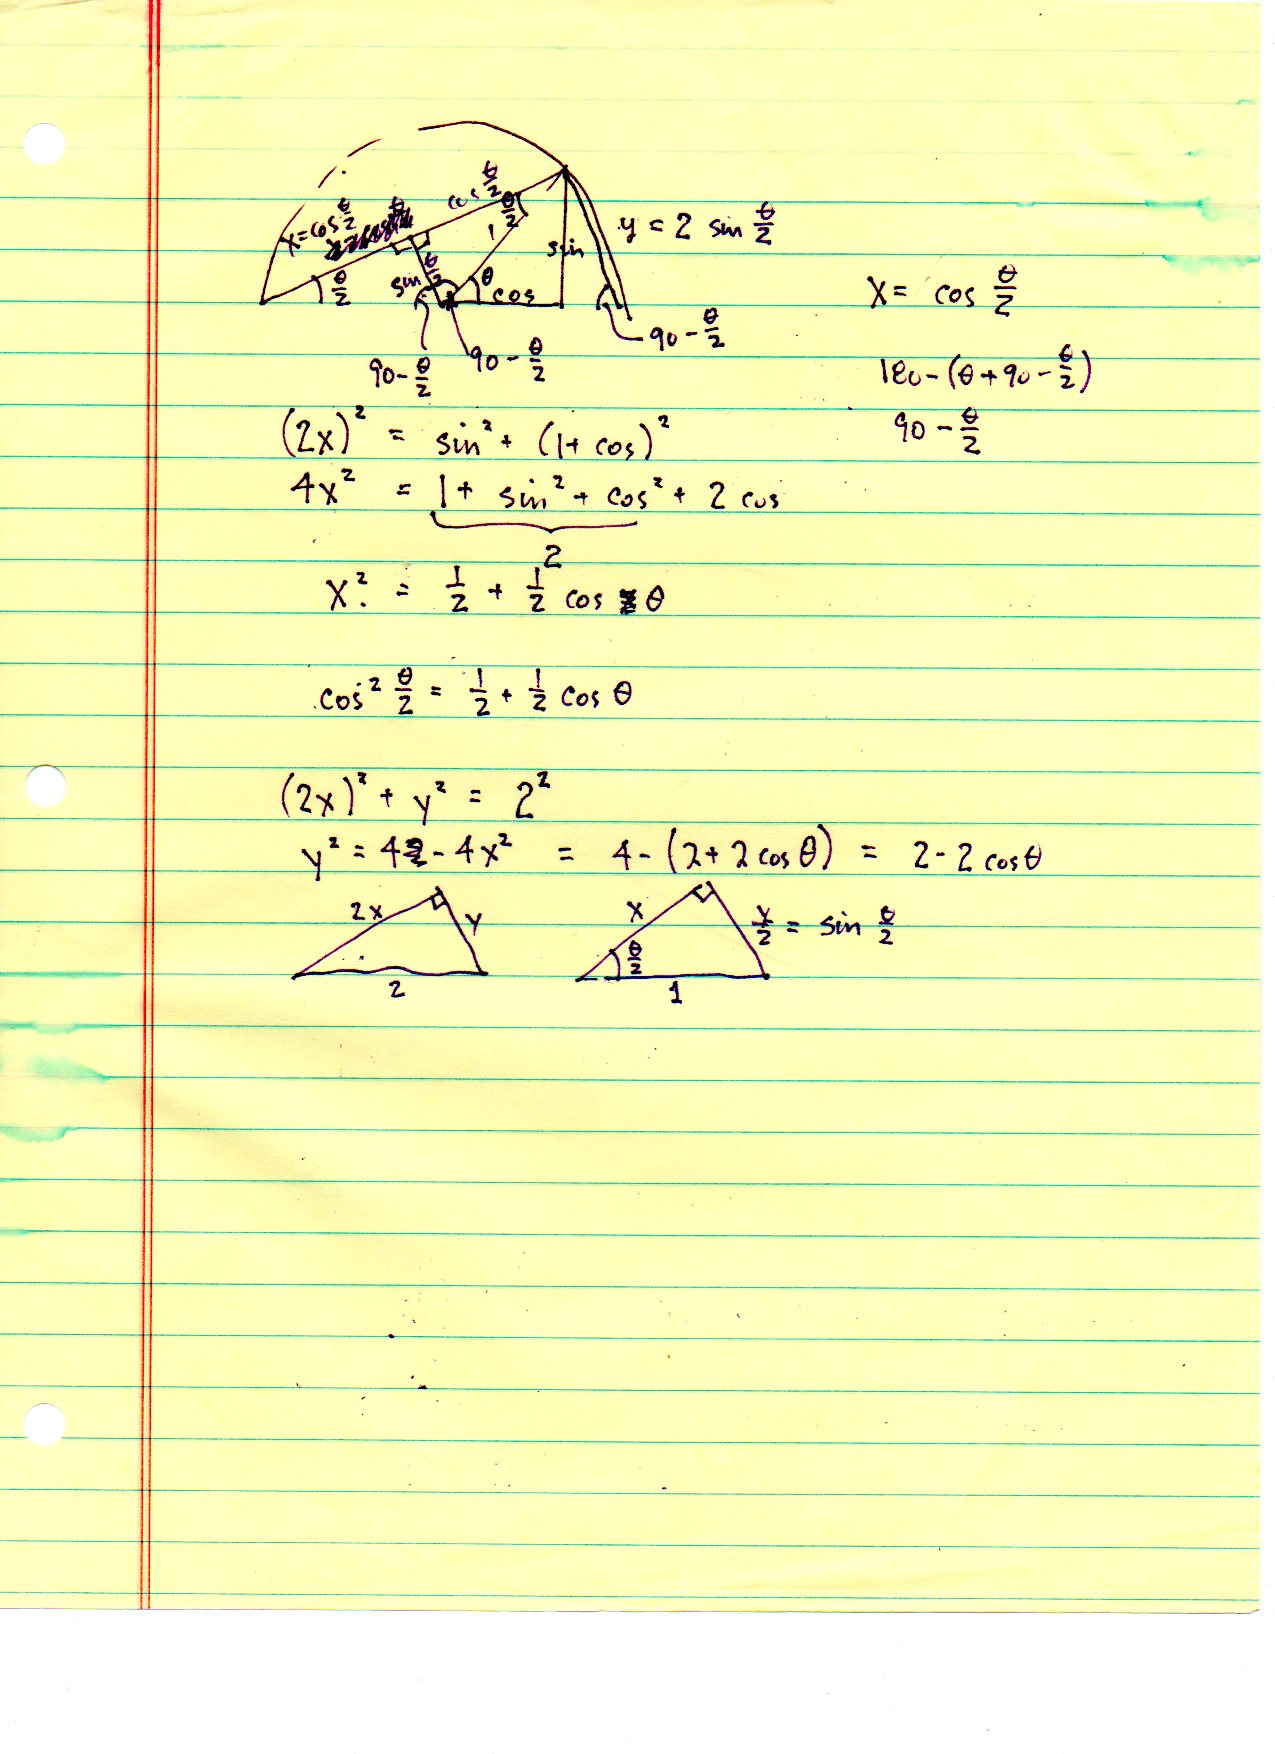 x = cos θ/2
cos θ/2
θ/2
1
sin θ/2
sin
y = 2 sin θ/2
θ/2
θ
cos
90 - θ/2
90 - θ/2
90 - θ/2
x = cos θ/2
180 - (θ + 90 - θ/2)
90 - θ/2
(2x)² = sin² + (1 + cos)²
4x² = 1 + sin² + cos² + 2 cos
2
x² = 1/2 + 1/2 cos θ
cos² θ/2 = 1/2 + 1/2 cos θ
(2x)² + y² = 2²
y² = 4 - 4x² = 4 - (2 + 2 cos θ) = 2 - 2 cos θ
2x
y
2
x
θ/2
1
y/2 = sin θ/2